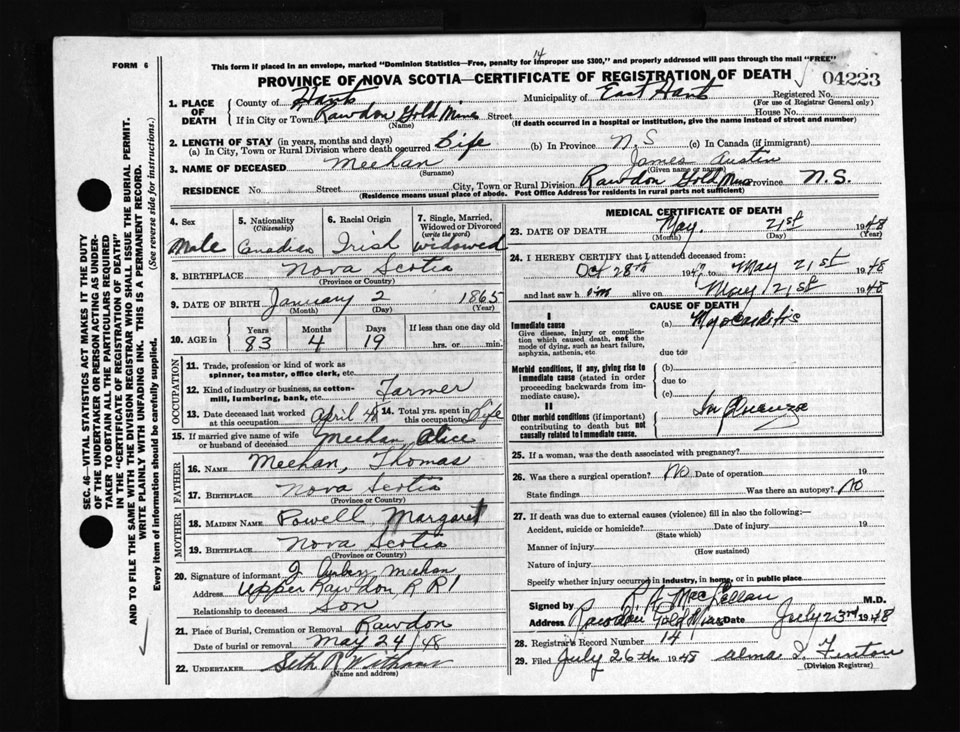 14
FORM 6
This form if placed in an envelope, marked "Dominion Statistics—Free, penalty for improper use $300," and properly addressed will pass through the mail "FREE"
PROVINCE OF NOVA SCOTIA—CERTIFICATE OF REGISTRATION OF DEATH
04223
1. PLACE OF DEATH
County of Hants Municipality of East Hants Registered No.
(For use of Registrar General only)
If in City or Town Rawdon Gold Mines Street House No.
(Name) (If death occurred in a hospital or institution, give the name instead of street and number)
2. LENGTH OF STAY (in years, months and days)
(a) In City, Town or Rural Division where death occurred Life (b) In Province N.S (c) In Canada (if immigrant)
3. NAME OF DECEASED Meehan James Austin
(Surname) (Given name or names)
RESIDENCE No. Street City, Town or Rural Division Rawdon Gold Mines Province N.S.
(Residence means usual place of abode. Post Office Address for residents in rural parts not sufficient)
4. Sex Male
5. Nationality (Citizenship) Canadian
6. Racial Origin Irish
7. Single, Married, Widowed or Divorced (write the word) Widowed
8. BIRTHPLACE Nova Scotia
(Province or Country)
9. DATE OF BIRTH January 2 1865
(Month) (Day) (Year)
10. AGE in Years 83 Months 4 Days 19 If less than one day old
hrs. or min.
OCCUPATION
11. Trade, profession or kind of work as spinner, teamster, office clerk, etc.
12. Kind of industry or business, as cotton-mill, lumbering, bank, etc. Farmer
13. Date deceased last worked at this occupation April 14. Total yrs. spent in this occupation Life
15. If married give name of wife or husband of deceased Meehan, Alice
FATHER
16. NAME Meehan, Thomas
17. BIRTHPLACE Nova Scotia
(Province or Country)
MOTHER
18. MAIDEN NAME Powell, Margaret
19. BIRTHPLACE Nova Scotia
(Province or Country)
20. Signature of informant Meehan
Address Upper Rawdon R R 1
Relationship to deceased Son
21. Place of Burial, Cremation or Removal Rawdon
Date of burial or removal May 24/48
22. UNDERTAKER Seth
(Name and address)
MEDICAL CERTIFICATE OF DEATH
23. DATE OF DEATH May 21st 1948
(Month) (Day) (Year)
24. I HEREBY CERTIFY that I attended deceased from:
Oct 28th 194 to May 21st 1948
and last saw him alive on May 21st 1948
CAUSE OF DEATH
I
Immediate cause (a) Myocarditis
Give disease, injury or complication which caused death, not the mode of dying, such as heart failure, asphyxia, asthenia, etc
due to
Morbid conditions, if any, giving rise to immediate cause (stated in order proceeding backwards from immediate cause). (b)
due to
(c)
II
Other morbid conditions (if important) contributing to death but not causally related to immediate cause. Influenza
25. If a woman, was the death associated with pregnancy?
26. Was there a surgical operation? No Date of operation 19
State findings Was there an autopsy? No
27. If death was due to external causes (violence) fill in also the following:—
Accident, suicide or homicide? Date of injury 19
(State which)
Manner of injury
(How sustained)
Nature of injury
Specify whether injury occurred in industry, in home, or in public place
Signed by MacLellan M.D.
Address Rawdon Gold Mines Date July 23rd 1948
28. Registrar's Record Number 14
29. Filed July 26th 1948 Alma I. Fenton
(Division Registrar)
SEC. 46—VITAL STATISTICS ACT MAKES IT THE DUTY
OF THE UNDERTAKER OR PERSON ACTING AS UNDER-
TAKER TO OBTAIN ALL THE PARTICULARS REQUIRED
IN THE "CERTIFICATE OF REGISTRATION OF DEATH"
AND TO FILE THE SAME WITH THE DIVISION REGISTRAR WHO SHALL ISSUE THE BURIAL PERMIT.
WRITE PLAINLY WITH UNFADING INK. THIS IS A PERMANENT RECORD.
Every item of information should be carefully supplied. (See reverse side for instructions.)